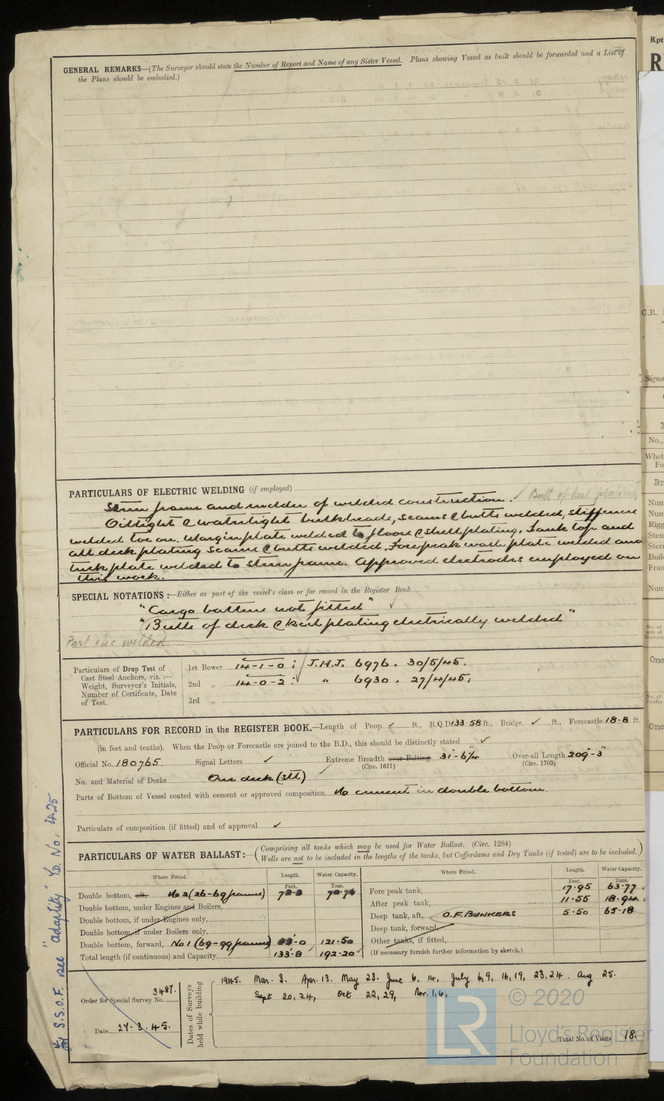 GENERAL REMARKS—(The Surveyor should state the Number of Report and Name of any Sister Vessel. Plans showing Vessel as built should be forwarded and a List of
the Plans should be embodied.)
PARTICULARS OF ELECTRIC WELDING (if employed)
Stern frame and rudder of welded construction. ✓ Butt of keel plating
Oiltight & watertight bulkheads, seams & butts welded, stiffeners
welded toe on. Margin plate welded to floors & shell plating, Tank top and
all deck plating seams & butts welded. Forepeak wash plate welded and
tuck plate welded to stern frame. Approved electrodes employed on
this work.
SPECIAL NOTATIONS:—Either as part of the vessel's class or for record in the Register Book
"Cargo battens not fitted" ✓
"Butts of deck & keel plating electrically welded"
Part elec welded
Particulars of Drop Test of
Cast Steel Anchors, viz.:—
Weight, Surveyor's Initials,
Number of Certificate, Date
of Test.
1st Bower 14-1-0 : J.H.J. 6976. 30/5/45.
2nd „ 14-0-2 : „ 6930. 27/4/45.
3rd „
PARTICULARS FOR RECORD in the REGISTER BOOK.—Length of Poop ✓ ft., R.Q.D. 133.58 ft., Bridge ✓ ft., Forecastle 18.8 ft.
(in feet and tenths). When the Poop or Forecastle are joined to the B.D., this should be distinctly stated ✓
Official No. 180765 Signal Letters ✓ Extreme Breadth over Belting 31'-6¾" (Circ. 1611) Over-all Length 209'-3" (Circ. 1703)
No. and Material of Decks One deck (stl)
Parts of Bottom of Vessel coated with cement or approved composition No cement in double bottom.
Particulars of composition (if fitted) and of approval ✓
PARTICULARS OF WATER BALLAST:—(Comprising all tanks which may be used for Water Ballast. (Circ. 1284)
Wells are not to be included in the lengths of the tanks, but Cofferdams and Dry Tanks (if tested) are to be included.)
Where Fitted. Length. Water Capacity. Where Fitted. Length. Water Capacity.
Feet. Tons. Feet. Tons.
Double bottom, aft, No 2 (26-69 frames)
Double bottom, under Engines and Boilers,
Double bottom, if under Engines only,
Double bottom, if under Boilers only,
Double bottom, forward, No 1 (69-99 frames) 121.50
Total length (if continuous) and Capacity 133.8 192.20
Fore peak tank, 17.95 63.77
After peak tank, 11.55 18.94
Deep tank, aft, O.F. BUNKERS 5.50 65.18
Deep tank, forward,
Other tanks, if fitted,
(If necessary furnish further information by sketch.)
Order for Special Survey No. 3487.
Date 27.3.45.
Dates of Surveys
held while building
1945. Mar. 3. Apr. 13. May 23. June 6, 14, July 6, 9, 16, 19, 23, 24. Aug 25.
Sept 20, 24, Oct 22, 29, Nov. 1, 6,
Total No. of Visits 18.
For S.S.O.F. see "Adaptity" Yd. No. 425
LR
© 2020
Lloyd's Register
Foundation